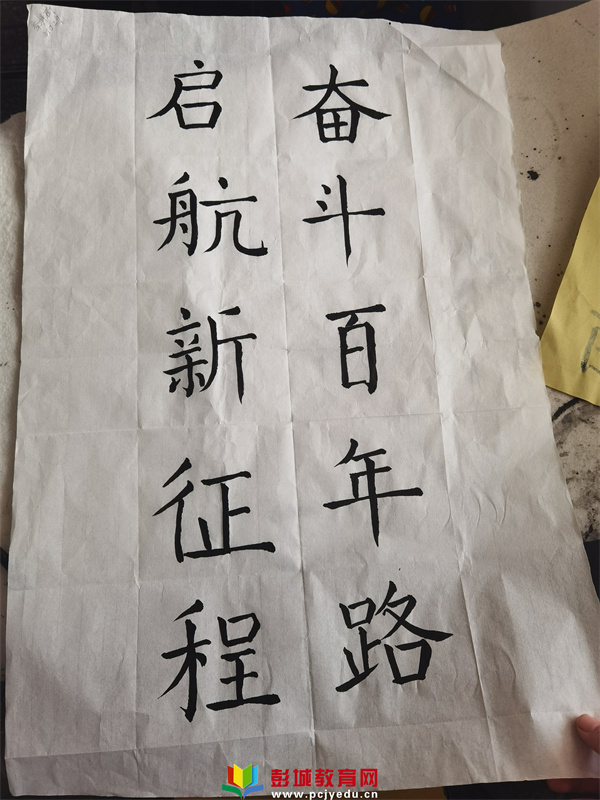 奋斗百年路
启航新征程
彭城教育网
www.pcjyedu.cn